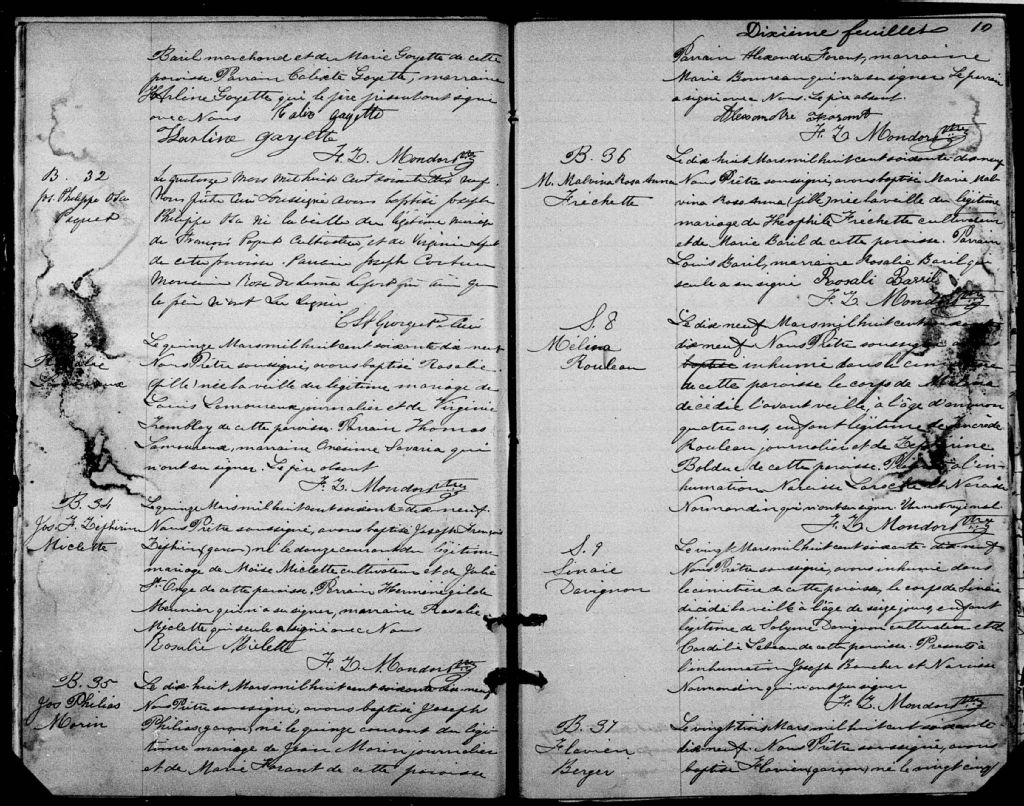 Baril marchand et de Marie Goyette de cette
paroisse Parrain Calixte Goyette, marraine
Harline Goyette qui le père présent ont signé
avec Nous Calix gayette
Harline gayette
F. Z. Mondor Ptre
B. 32
Jos. Philippe
Paquet
Le quatorze Mars mil huit cent soixante dix neuf
Nous prêtre soussigné avons baptisé Joseph
Philippe né la veille du légitime mariage
de François Paquet Cultivateur et de Virginie
de cette paroisse. Parrain Joseph
Rose de Lima qui ainsi que
le père n'ont su signer
C. St Georges
Lamoureux
Le quinze Mars mil huit cent soixante dix neuf
Nous Prêtre soussigné, avons baptisé Rosalie
(fille) née la veille du légitime mariage de
Louis Lamoureux journalier et de Virginie
Trembley de cette paroisse. Parrain Thomas
Lamoureux, marraine Onésime Savaria qui
n'ont su signer. Le père absent
F. Z. Mondor Ptre
B. 34
Jos. F. Zéphirin
Miclette
Le quinze Mars mil huit cent soixante dix neuf.
Nous Prêtre soussigné, avons baptisé Joseph François
Zéphirin (garçon) né le douze courant du légitime
mariage de Moïse Miclette cultivateur et de Julie
St. Onge de cette paroisse. Parrain Herménégilde
Meunier qui n'a su signer, marraine Rosalie
Miclette qui seule a signé avec Nous
Rosalie Miclette
F. Z. Mondor Ptre
B. 35
Jos Philias
Morin
Le dix huit Mars mil huit cent soixante dix neuf
Nous Prêtre soussigné, avons baptisé Joseph
Philias (garçon) né le quinze courant du légi
time mariage de Jean Morin journalier
et de Marie Forant de cette paroisse
Dixième feuillet 10
Parrain Alexandre Forant, marraine
Marie Bonneau qui n'a su signer Le parrain
a signé avec Nous. Le père absent.
Alexandre Forant
F. Z. Mondor Ptre
B. 36
M. Malvina Rosa Anna
Frechette
Le dix huit Mars mil huit cent soixante dix neuf
Nous Prêtre soussigné, avons baptisé Marie Mal
vina Rose Anna (fille) née la veille du légitime
mariage de Théophile Frechette cultivateur
et de Marie Baril de cette paroisse. Parrain
Louis Baril, marraine Rosalie Baril qui
seule a su signé Rosali Barril
F. Z. Mondor Ptre
S. 8
Mélina
Rouleau
Le dix neuf Mars mil huit cent soixante
dix neuf Nous Prêtre soussigné
baptisé inhumé dans le cimetière
de cette paroisse le corps de Mélina
décédée l'avant veille, à l'âge d'environ
quatre ans, enfant légitime de
Rouleau journalier et de Zéphirine
Bolduc de cette paroisse. à l'in
humation Narcisse et Narcisse
Normandin qui n'ont su signer. Un mot rayé nul
F. Z. Mondor Ptre
S. 9
Sinaïe
Davignon
Le vingt Mars mil huit cent soixante dix neuf
Nous Prêtre soussigné, avons inhumé dans
le cimetière de cette paroisse, le corps de Sinaïe
décédé la veille à l'âge de seize jours, enfant
légitime de Solyme Davignon cultivateur et de
Cordélie Lebeau de cette paroisse. Présents à
l'inhumation Joseph Boucher et Narcisse
Normandin qui n'ont su signer
F. Z. Mondor Ptre
B. 37
Flavien
Berger
Le vingt trois Mars mil huit cent soixante
dix neuf. Nous Prêtre soussigné, avons
baptisé Flavien (garçon) né le vingt cinq